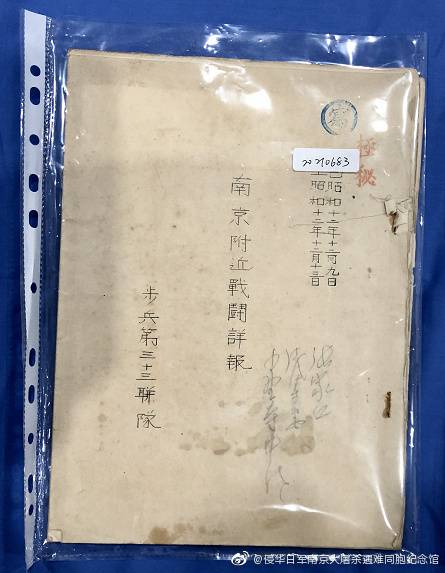 極秘
自昭和十二年十二月九日
至昭和十二年十二月十三日
南京附近戰鬪詳報
步兵第三十三聯隊
@侵华日军南京大屠杀遇难同胞纪念馆